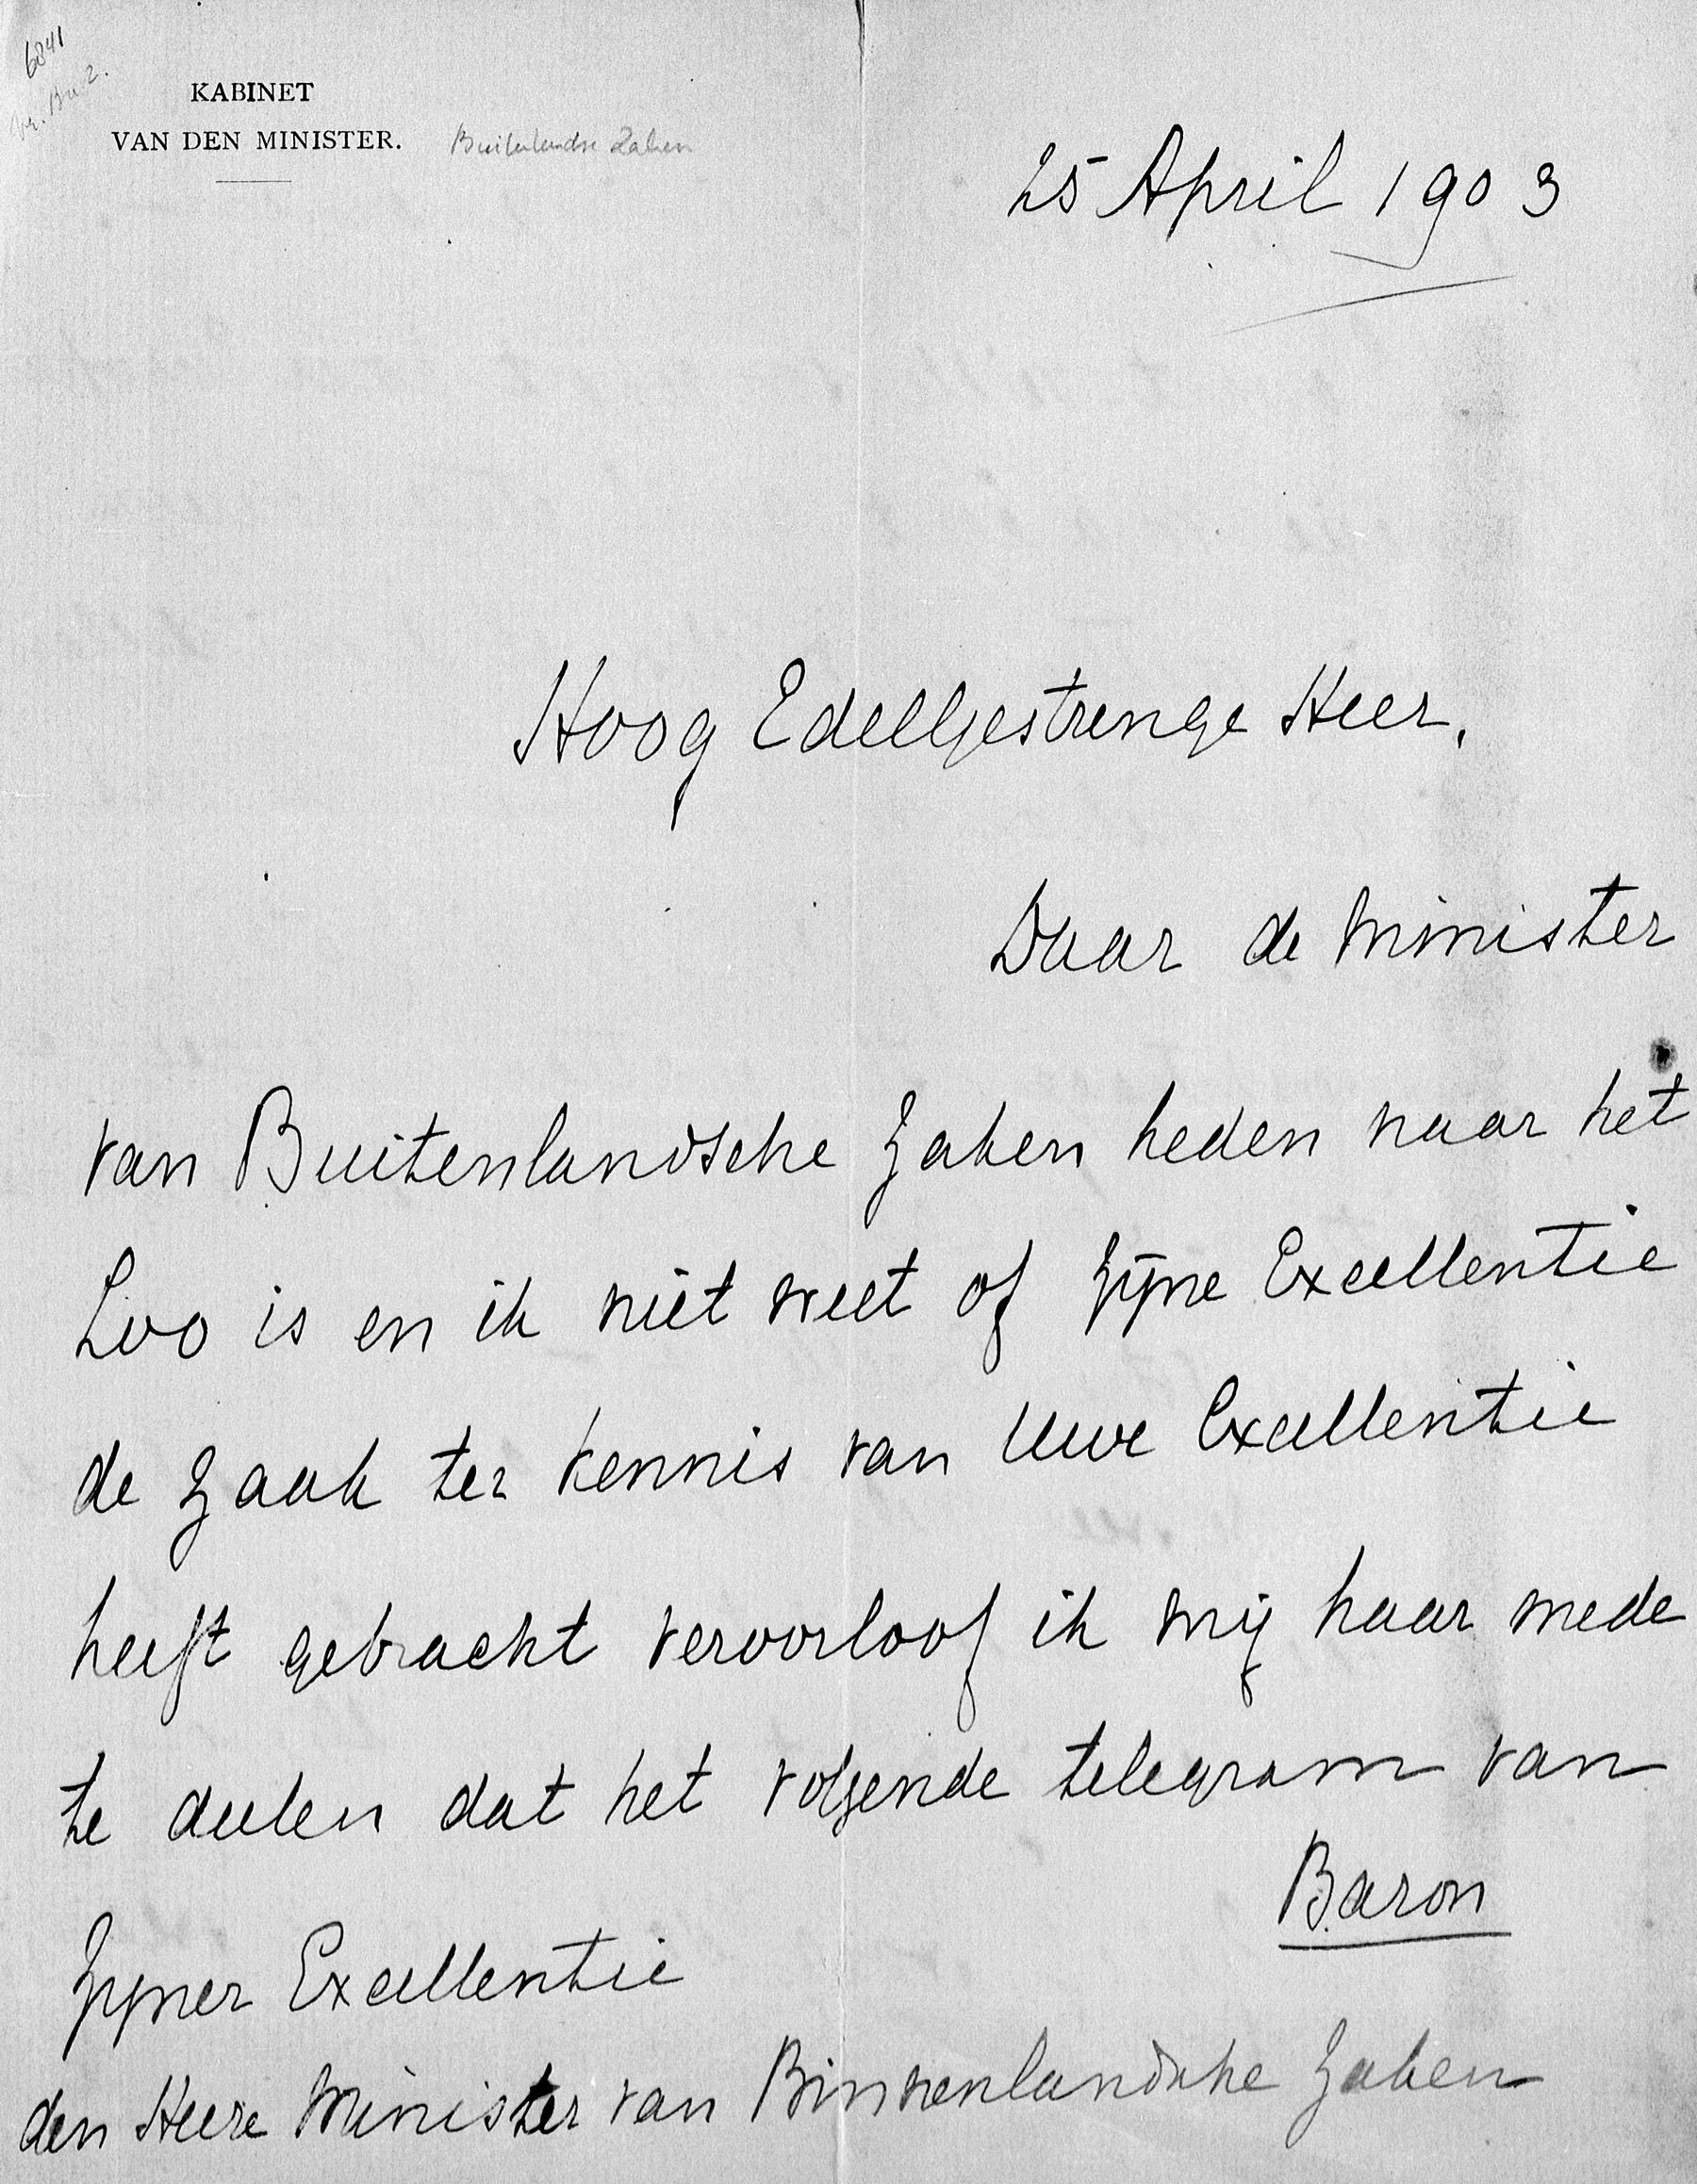 6841
KABINET
VAN DEN MINISTER. Buitenlandse Zaken
25 April 1903
Hoog Edelgestrenge Heer,
Daar de Minister
van Buitenlandsche Zaken heden naar het
Loo is en ik niet weet of Zijne Excellentie
de zaak ter kennis van Uwe Excellentie
heeft gebracht veroorloof ik mij haar mede
te deelen dat het volgende telegram van
Baron
Zijner Excellentie
den Heere Minister van Binnenlandsche Zaken